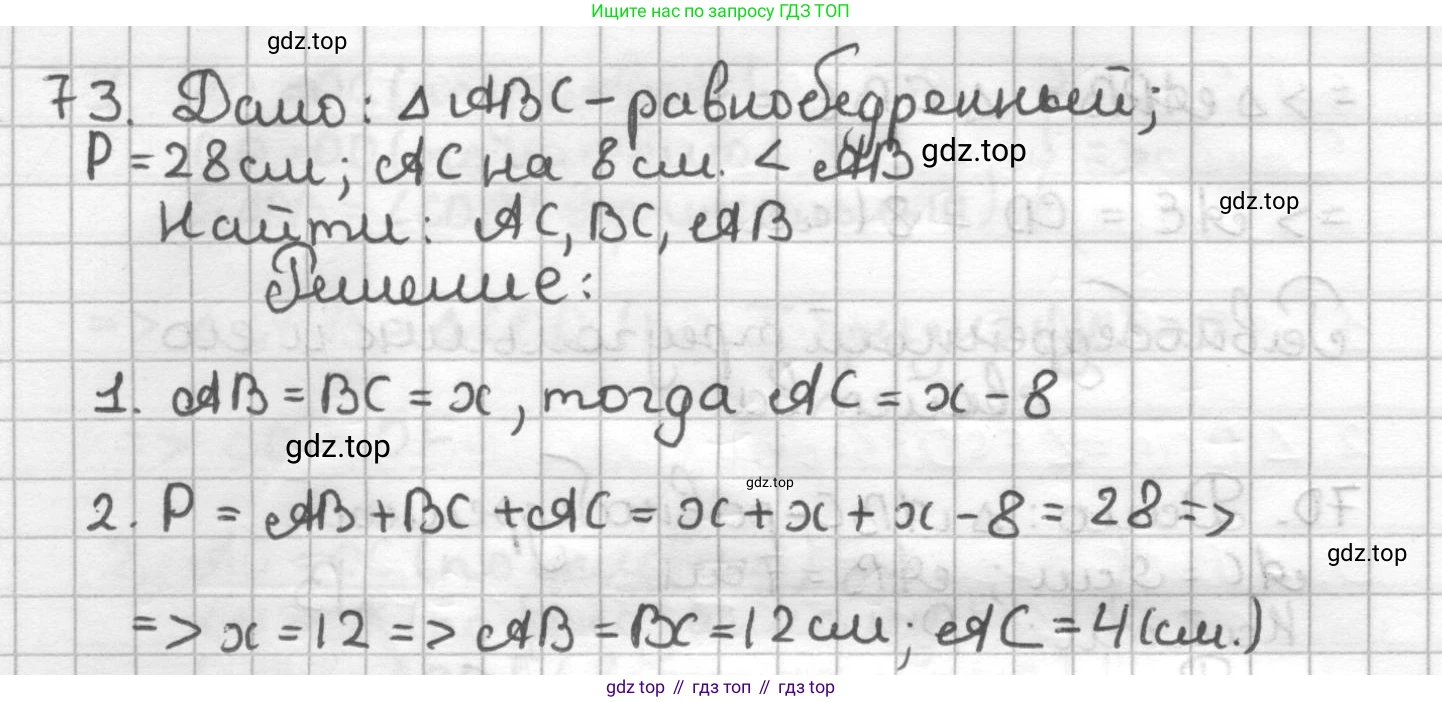 Ищите нас по запросу ГДЗ ТОП
gdz.top
73. Дано: Δ ABC - равнобедренный;
P = 28 см; AC на 8 см. < AB
gdz.top
gdz.top
Найти: AC, BC, AB
Решение:
1. AB = BC = x, тогда AC = x - 8
gdz.top
gdz.top
2. P = AB + BC + AC = x + x + x - 8 = 28 =>
gdz.top
=> x = 12 => AB = BC = 12 см; AC = 4 (см.)
gdz.top // гдз топ // гдз top